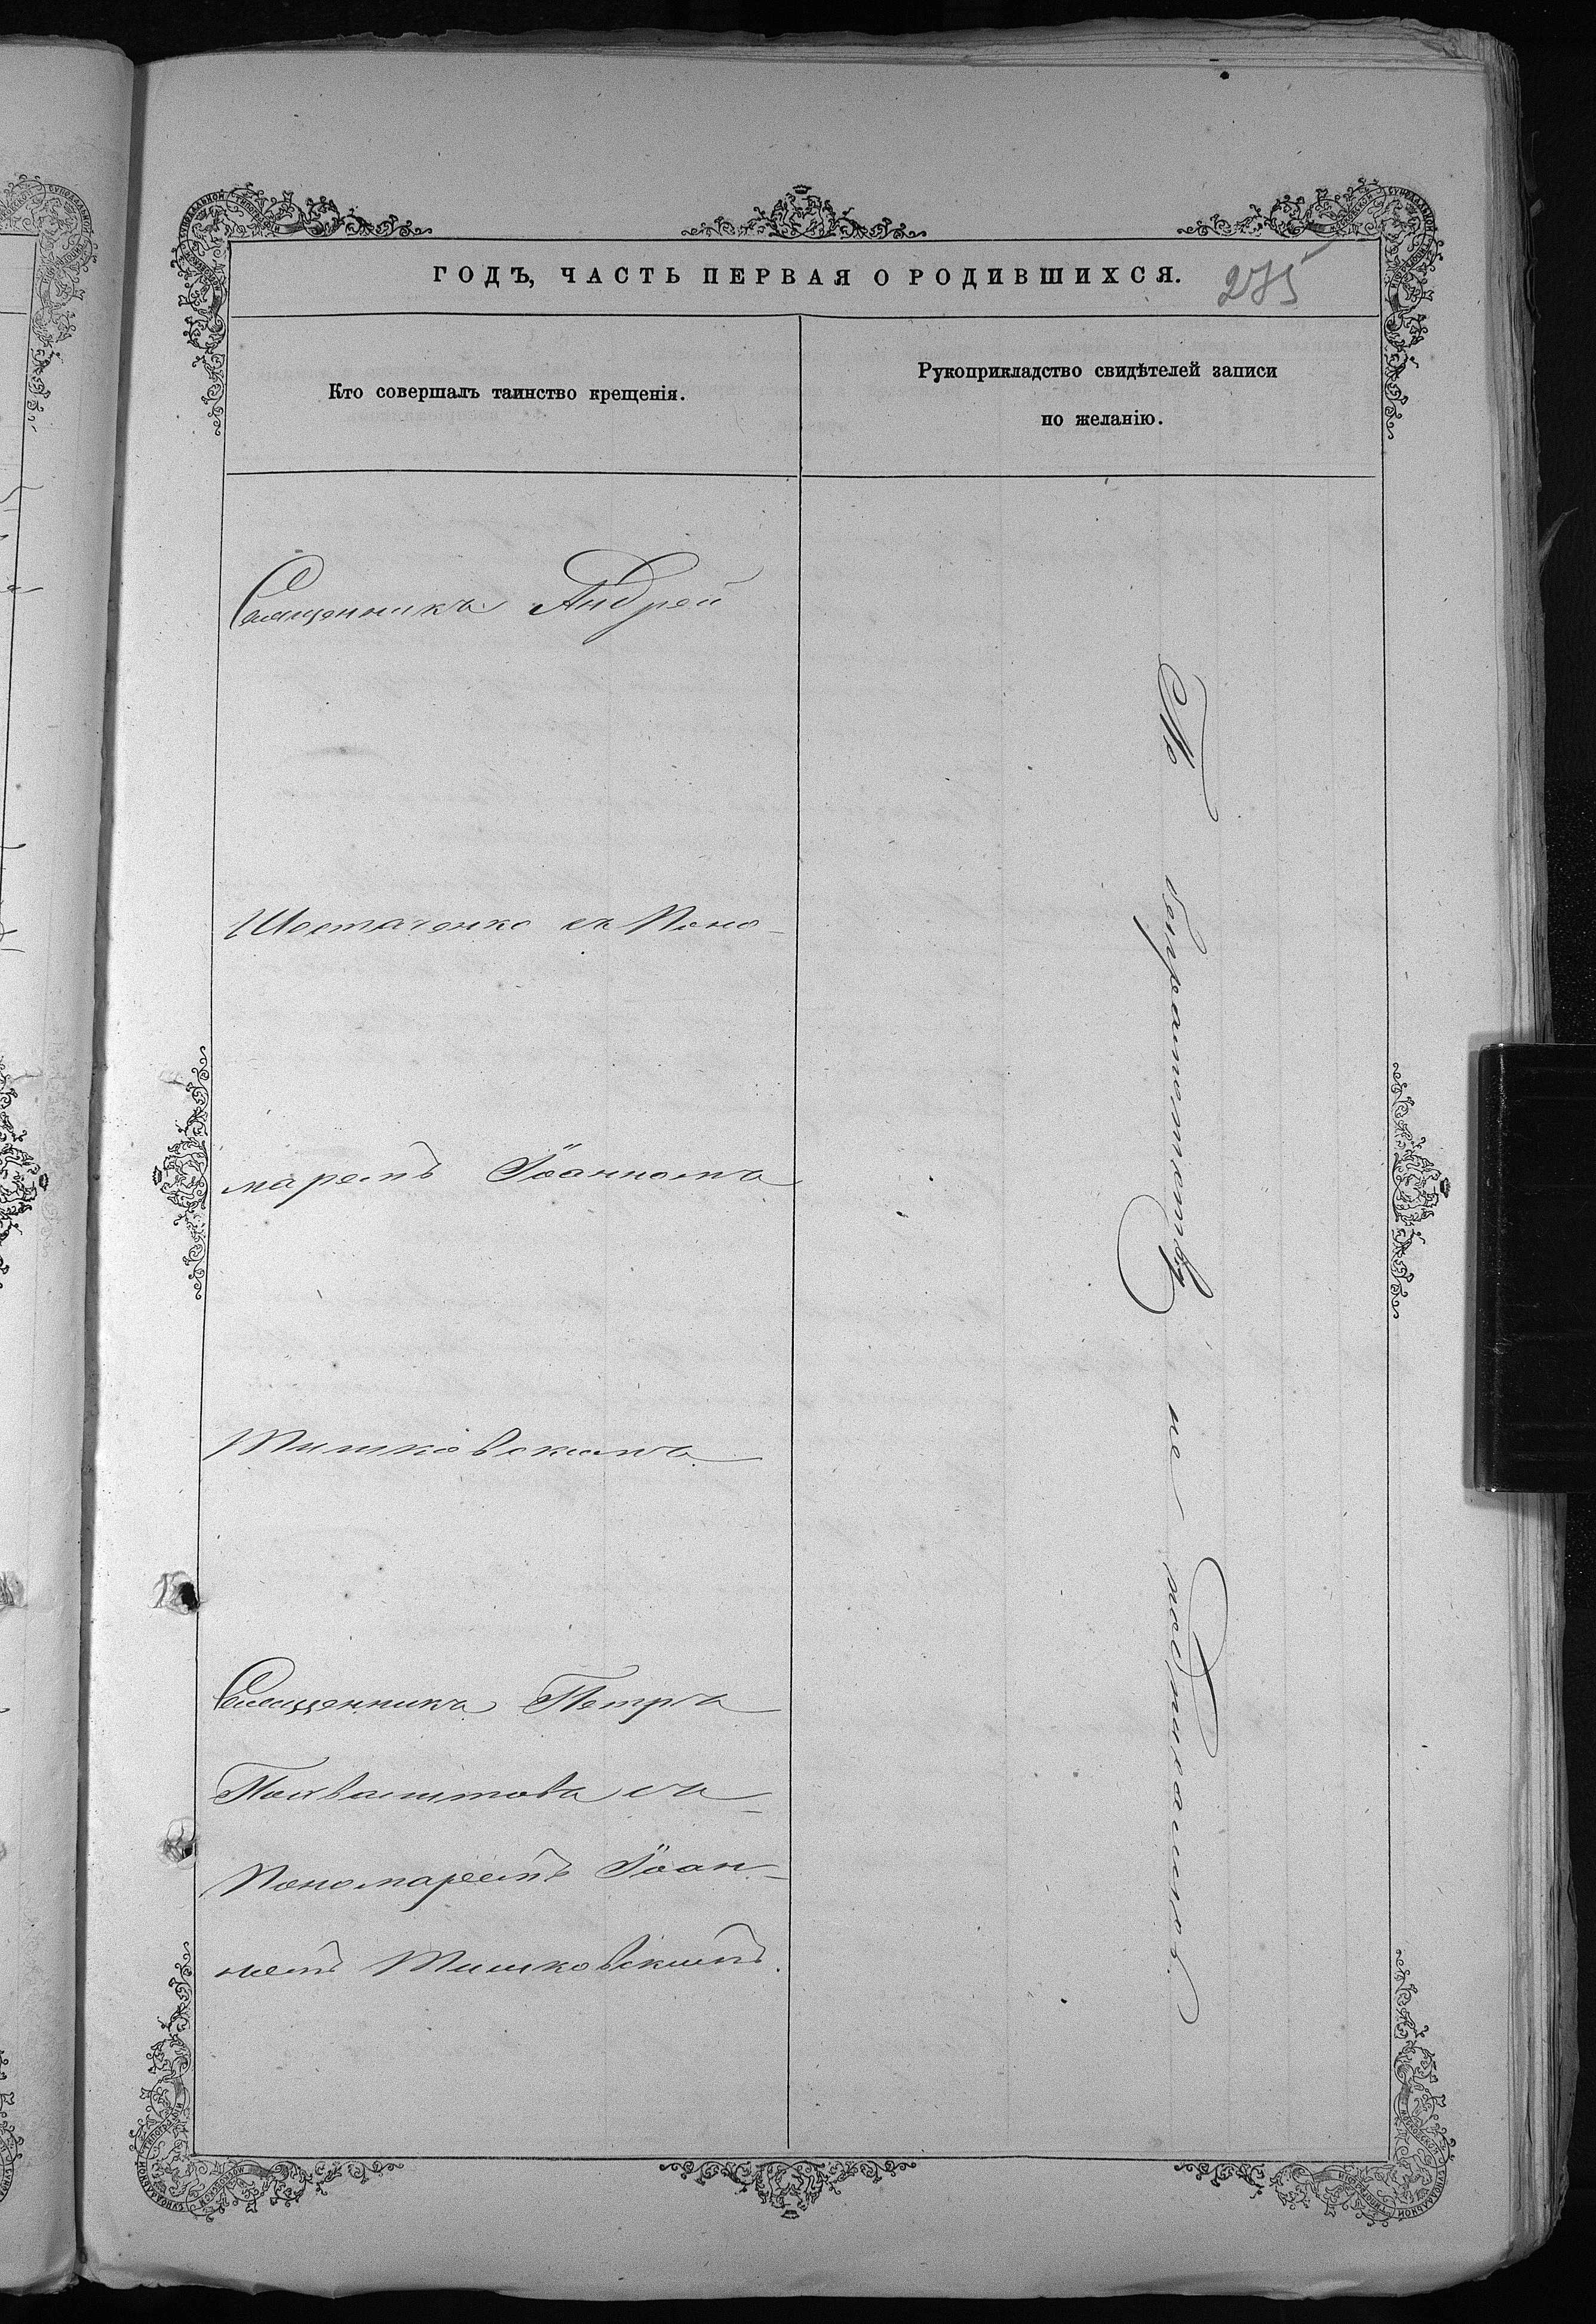 ГОДЪ, ЧАСТЬ ПЕРВАЯ О РОДИВШИХСЯ.
275
Кто совершалъ таинство крещенія.
Рукоприкладство свидѣтелей записи
по желанію.
Священникъ Андрей
Шостаченко съ Поно-
маремъ Іоанномъ
Тишковскимъ
Священникъ Петръ
съ
Пономаремъ Іоан-
номъ Тишковскимъ.
По безграмотству не подписались.